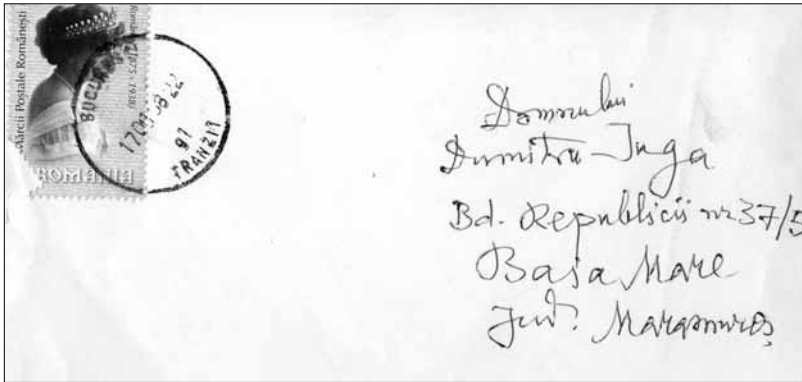 Mărcii Poștale Românești
1875-1938)
ROMANIA
BUCUR
17
22
97
TRANZIT
Domnului
Dumitru Iuga
Bd. Republicii nr 37/5
Baia Mare
Jud. Maramureș